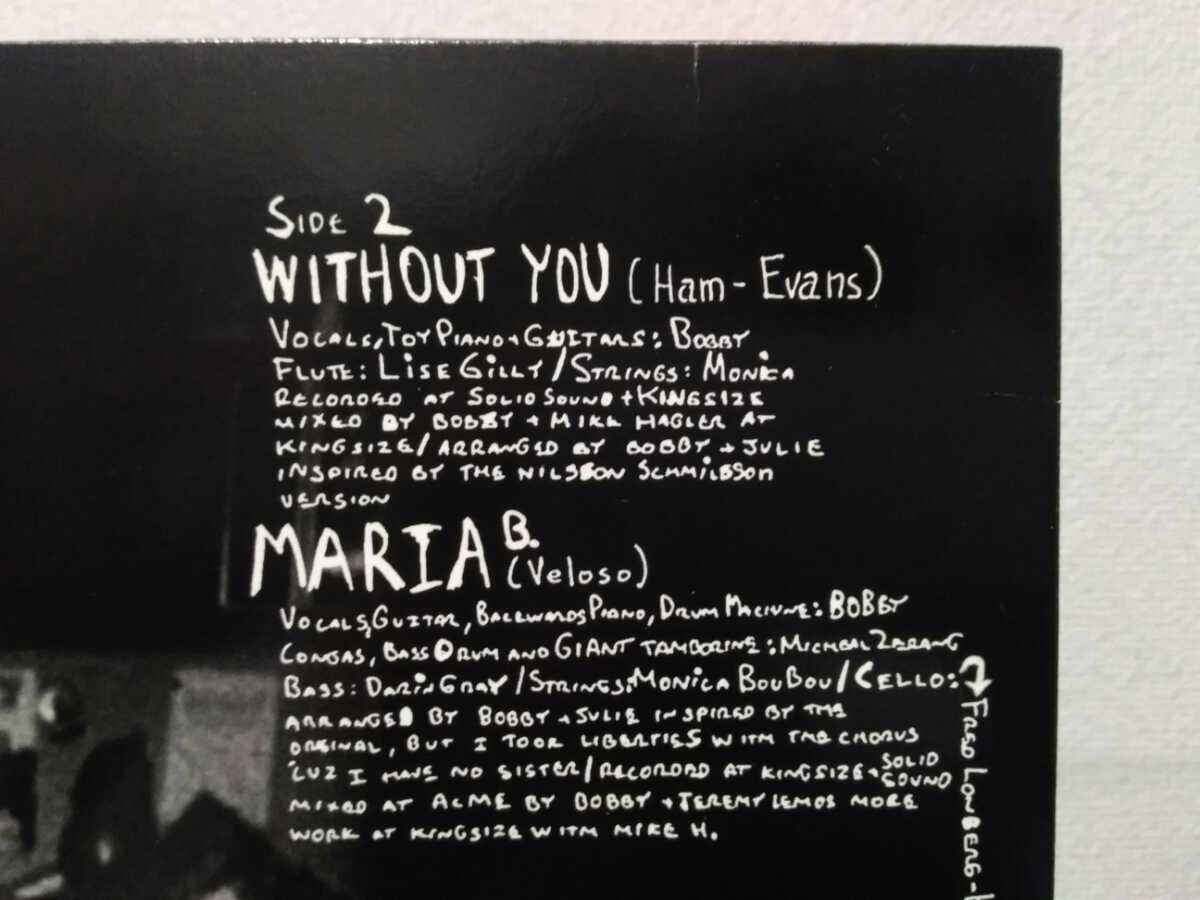 SIDE 2
WITHOUT YOU (Ham-Evans)
VOCALS, TOY PIANO + GUITARS: BOBBY
FLUTE: LISE GILLY / STRINGS: MONICA
RECORDED AT SOLID SOUND + KINGSIZE
MIXED BY BOBBY + MIKE HAGLER AT
KINGSIZE / ARRANGED BY BOBBY + JULIE
INSPIRED BY THE NILSSON SCHMILSSON
VERSION
MARIA B.
(Veloso)
VOCALS, GUITAR, BACKWARDS PIANO, DRUM MACHINE: BOBBY
CONGAS, BASS DRUM AND GIANT TAMBORINE: MICHEAL ZERANG
BASS: DARIN GRAY / STRINGS: MONICA BOUBOU / CELLO:
FRED LONBERG-
ARRANGED BY BOBBY + JULIE INSPIRED BY THE
ORIGINAL, BUT I TOOK LIBERTIES WITH THE CHORUS
'CUZ I HAVE NO SISTER / RECORDED AT KINGSIZE + SOLID SOUND
MIXED AT ACME BY BOBBY + JEREMY LEMOS MORE
WORK AT KINGSIZE WITH MIKE H.